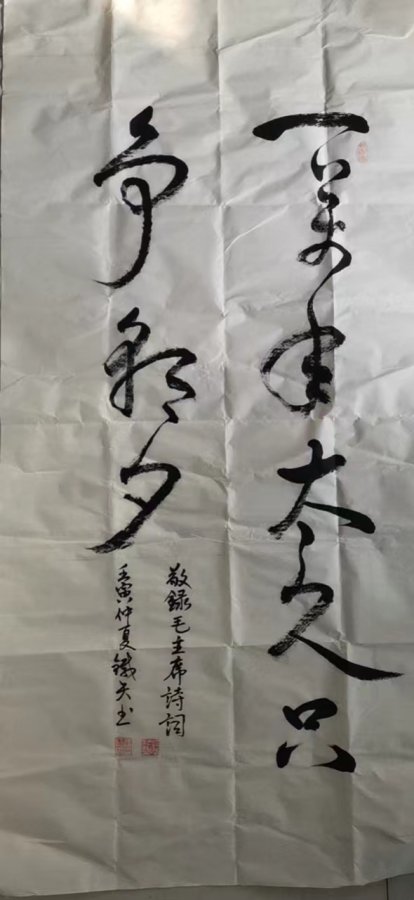 一萬年太久只
争朝夕
敬録毛主席詩詞
壬寅仲夏鐵夫书